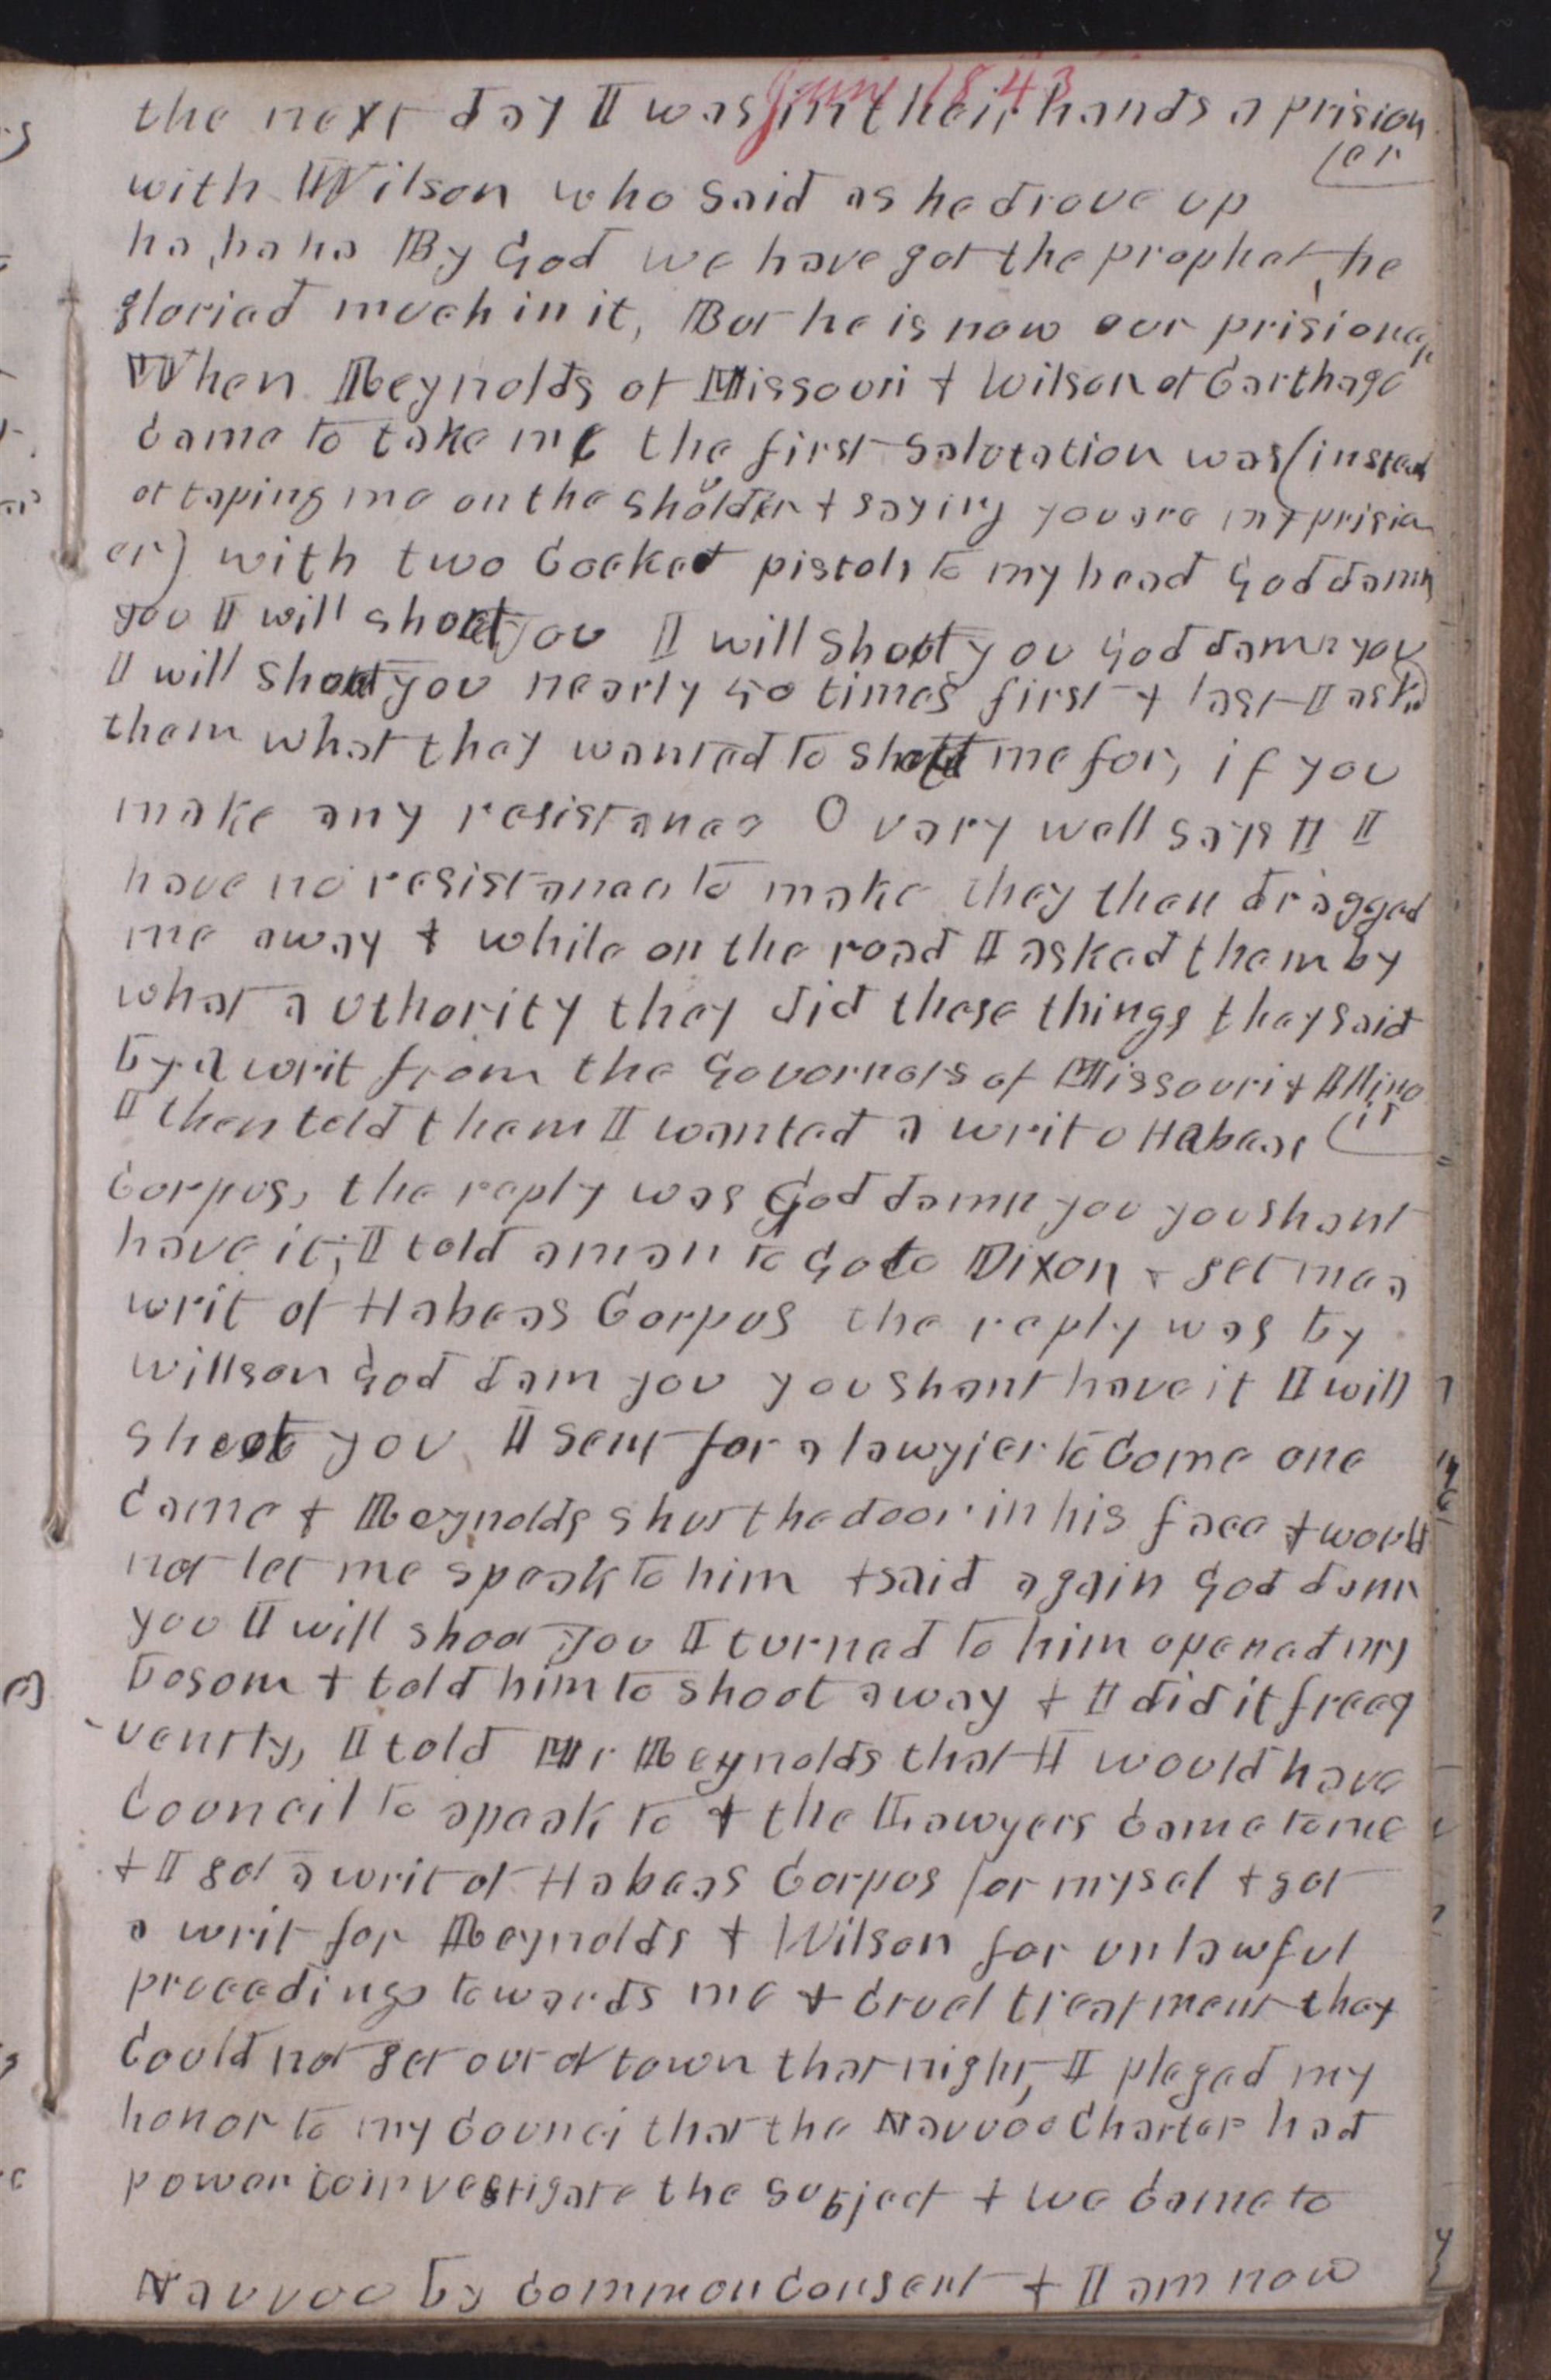 June 1843
the next day I was in their hands a prision
er
with Wilson who said as he drove up
ha, ha ha By God we have got the prophet, he
gloried much in it, But he is now our prisioner
When Reynolds of Missouri & Wilson of Carthage
Came to take me the first Salutation was (instead
of taping me on the sholder & saying you are my prision
er) with two Cocked pistols to my head God damn
you I will shoot you I will shoot you God damn you
I will shoot you nearly 50 times first & last I asked
them what they wanted to shoot me for, if you
make any resistance O very well says I I
have no resistance to make they then dragged
me away & while on the road I asked them by
what authority they did these things they said
by a writ from the Governors of Missouri & Illino
is
I then told them I wanted a writ o Habeas
Corpus, the reply was God damn you you shant
have it, I told a man to Go to Dixon & get me a
writ of Habeas Corpus the reply was by
willson God dam you you shant have it I will
shoot you I sent for a lawyier to Come one
Came & Reynolds shut the door in his face & would
not let me speak to him & said again God damn
you I will shoot you I turned to him opened my
bosom & told him to shoot away & I did it freeq
uently, I told Mr Reynolds that I would have
Council to speak to & the Lawyers Came to me
& I got a writ of Habeas Corpus for mysel & got
a writ for Reynolds & Wilson for unlawful
proceedings towards me & Cruel treatment they
Could not get out of town that night, I pleged my
honor to my Counci that the Nauvoo Charter had
power to investigate the subject & we Came to
Nauvoo by Common Consent & I am now